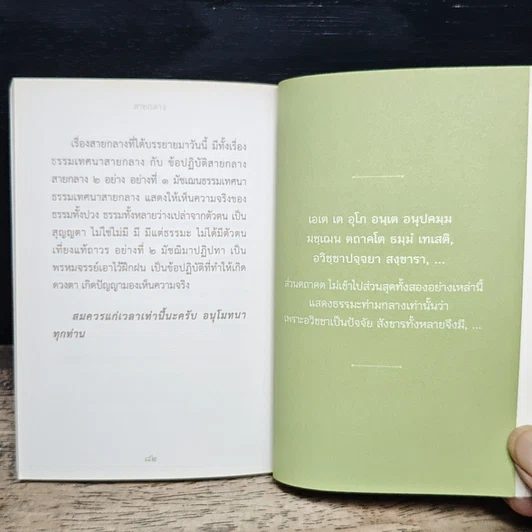 สายกลาง
เรื่องสายกลางที่ได้บรรยายมาวันนี้ มีทั้งเรื่อง
ธรรมเทศนาสายกลาง กับ ข้อปฏิบัติสายกลาง
สายกลาง ๒ อย่าง อย่างที่ ๑ มัชเฌนธรรมเทศนา
ธรรมเทศนาสายกลาง แสดงให้เห็นความจริงของ
ธรรมทั้งปวง ธรรมทั้งหลายว่างเปล่าจากตัวตน เป็น
สุญญตา ไม่ใช่ไม่มี มี มีแต่ธรรมะ ไม่ได้มีตัวตน
เที่ยงแท้ถาวร อย่างที่ ๒ มัชฌิมาปฏิปทา เป็น
พรหมจรรย์เอาไว้ฝึกฝน เป็นข้อปฏิบัติที่ทำให้เกิด
ดวงตา เกิดปัญญามองเห็นความจริง
สมควรแก่เวลาเท่านี้นะครับ อนุโมทนา
ทุกท่าน
๘๒
เอเต เต อุโภ อนฺเต อนุปคมฺม
มชฺเฌน ตถาคโต ธมฺมํ เทเสติ,
อวิชฺชาปจฺจยา สงฺขารา, ...
ส่วนตถาคต ไม่เข้าไปส่วนสุดทั้งสองอย่างเหล่านี้
แสดงธรรมะท่ามกลางเท่านั้นว่า
เพราะอวิชชาเป็นปัจจัย สังขารทั้งหลายจึงมี, ...